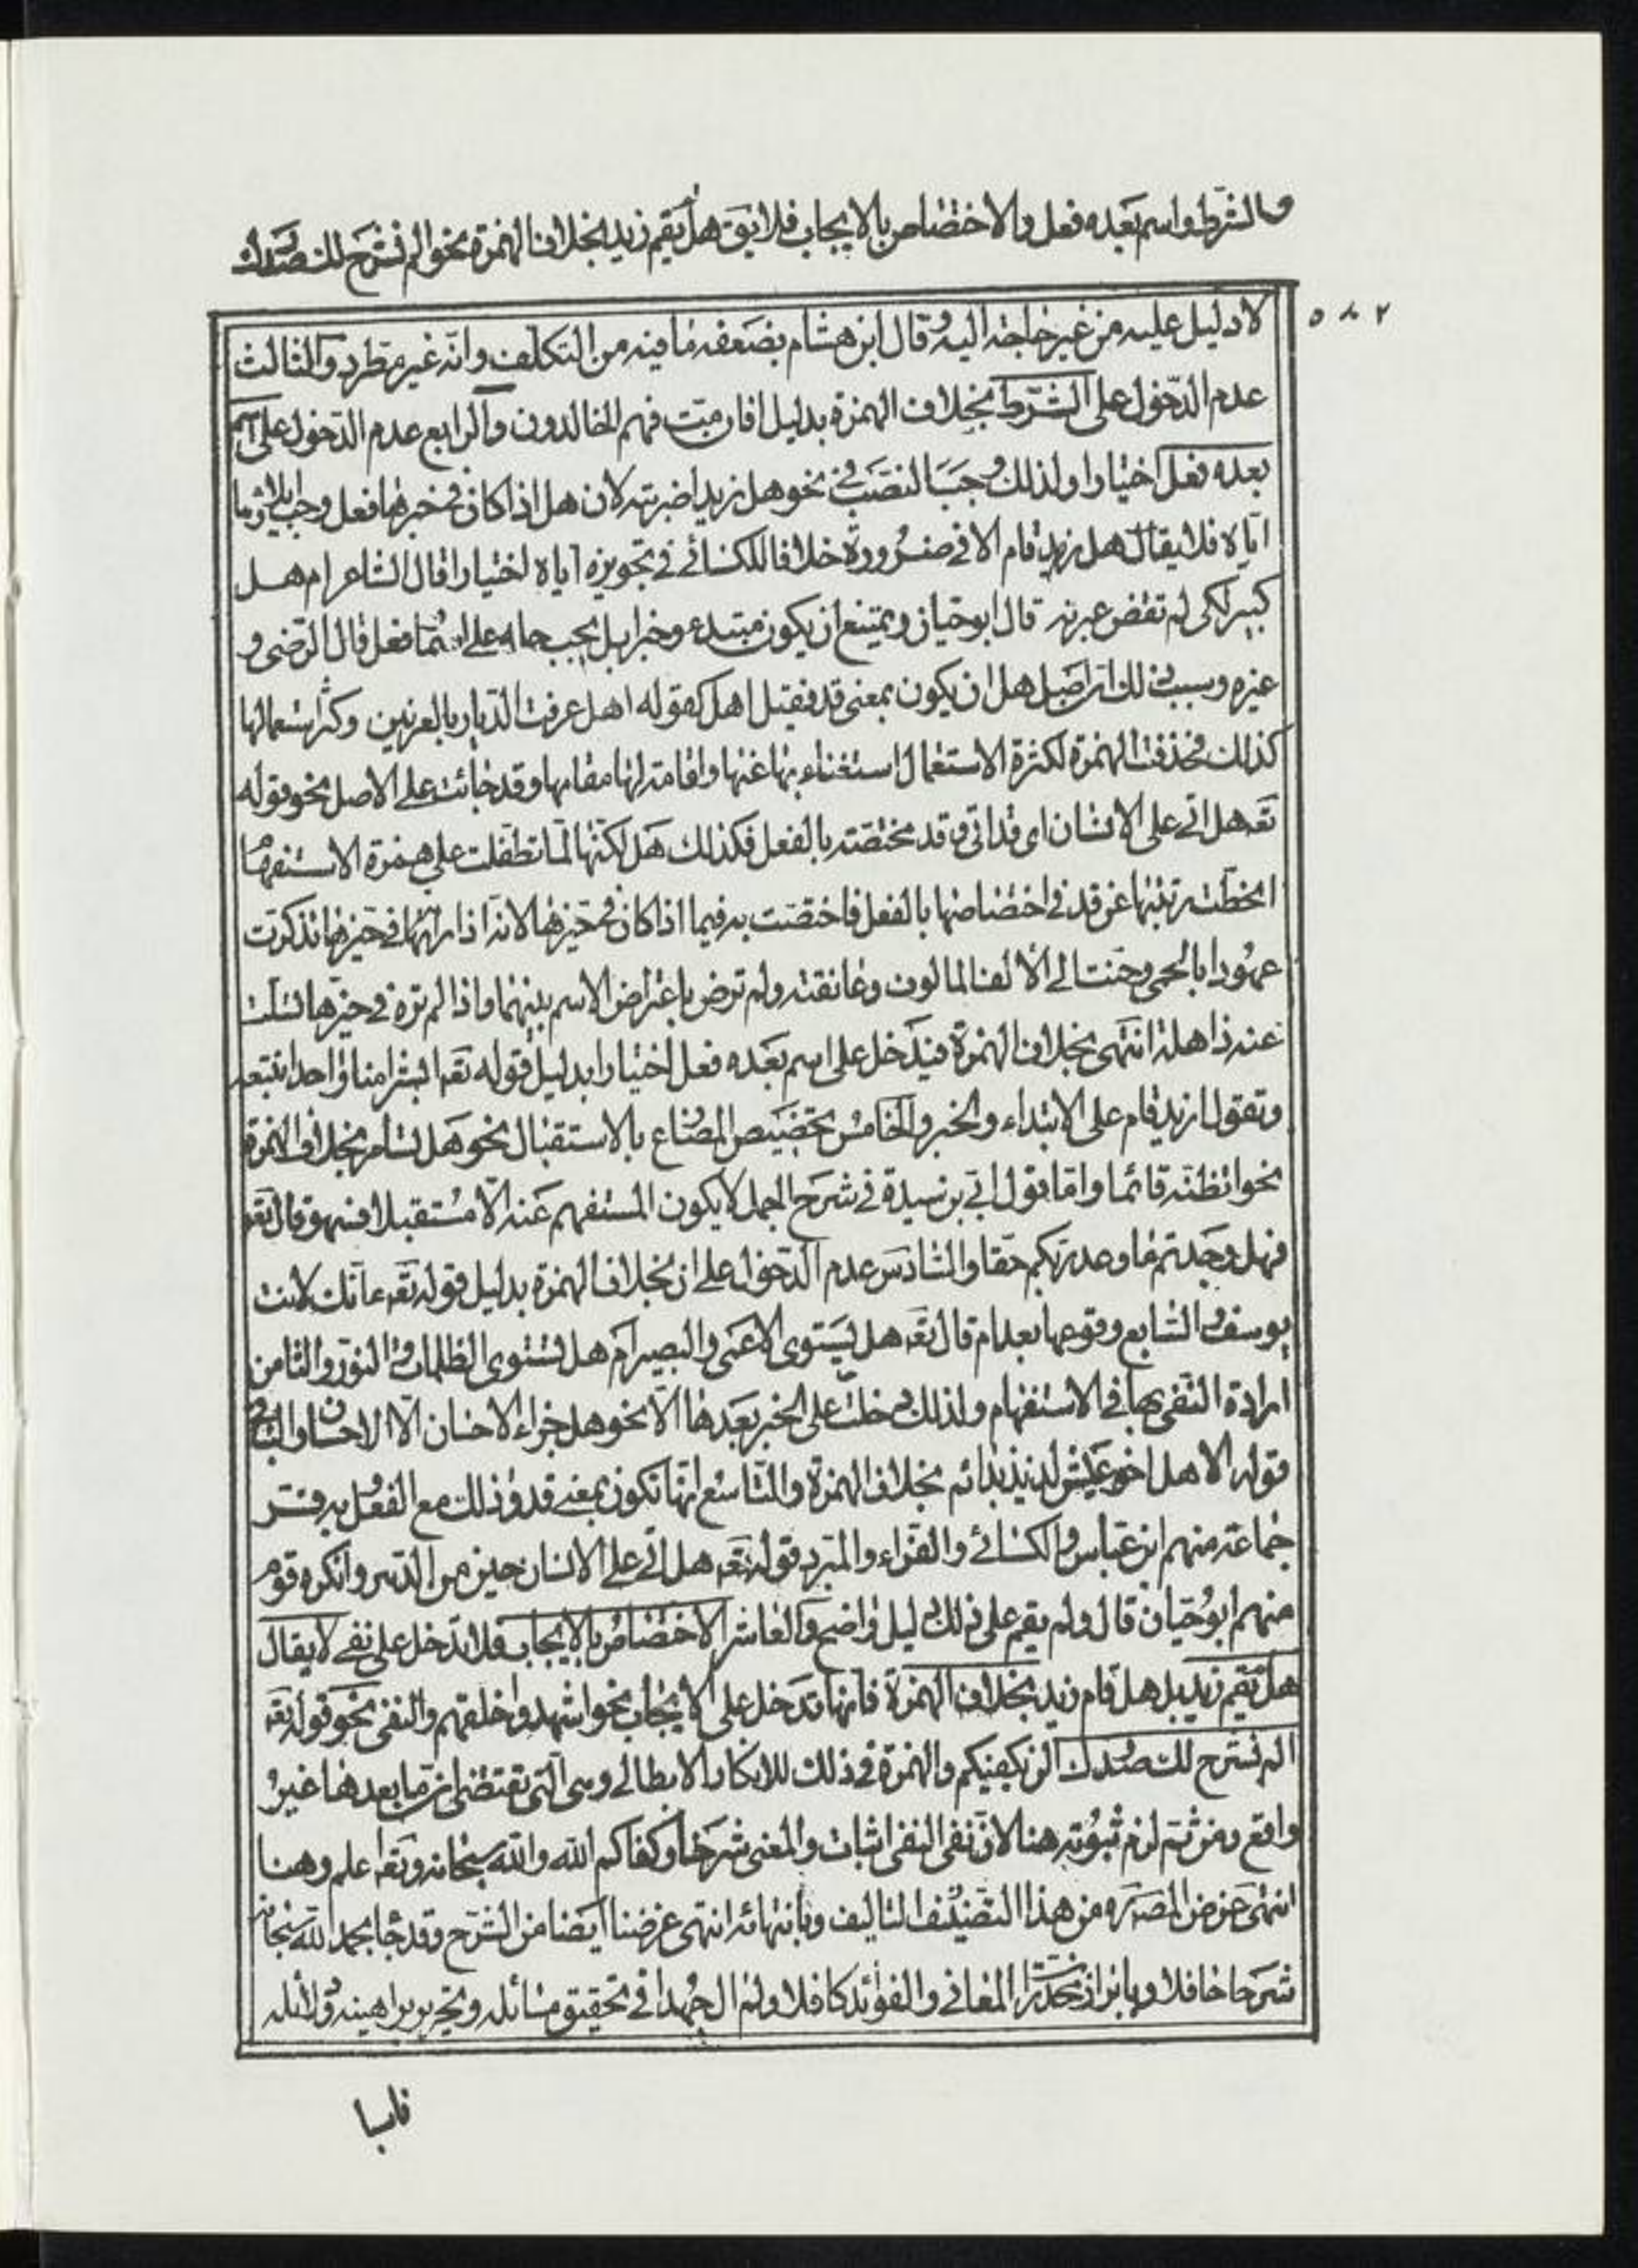 والشرط واسم بعده فعل والاختصاص بالايجاب فلا يق هل لم يقم زيد بخلاف الهمزة نحو الم نشرح لك صدرك
٥٨٢
لا دليل عليه من غير حاجة اليه وقال ابن هشام يضعفه ما فيه من التكلف وانه غير مطرد والثالث
عدم الدخول على الشرط بخلاف الهمزة بدليل افان مت فهم الخالدون والرابع عدم الدخول على اسم
بعده فعل اختيارا ولذلك وجب النصب في نحو هل زيدا ضربته لان هل اذا كان في خبرها فعل وجب ايلاؤها
اياه فلا يقال هل زيد قام الا في ضرورة خلافا للكسائي في تجويزه اياه اختيارا قال الشاعر ام هل
كبير بكى لم تقض عبرته قال ابو حيان ويمتنع ان يكون مبتدء وخبرا بل يجب حمله على فعل قال الرضي و
غيره وسبب ذلك ان اصل هل ان يكون بمعنى قد فقيل اهل كقوله اهل عرفت الديار بالغريين وكثر استعمالها
كذلك فحذفت الهمزة لكثرة الاستعمال استغناء بها عنها واقامة لها مقامها وقد جائت على الاصل نحو قوله
تعه هل اتى على الانسان اى قد اتى وقد مختصة بالفعل فكذلك هل لكنها لما تطفلت على همزة الاستفهام
انحطت رتبتها عن قد في اختصاصها بالفعل فاختصت به فيما اذا كان في حيزها لانها اذا راتها في حيزها تذكرت
عهودا بالحمى وحنت الى الالف المالوف وعانقته ولم ترض باعتراض الاسم بينهما واذا لم تره في حيزها تسلت
عنه ذاهلة انتهى بخلاف الهمزة فيدخل على اسم بعده فعل اختيارا بدليل قوله تعه ابشرا منا واحدا نتبعه
وتقول ازيد قام على الابتداء والخبر والخامس تخصيص المضارع بالاستقبال نحو هل تسافر بخلاف الهمزة
نحو اتظنه قائما واما قول ابن سيدة في شرح الجمل لا يكون المستفهم عنه الا مستقبلا فسهو قال تعه
فهل وجدتم ما وعد ربكم حقا والسادس عدم الدخول على ان بخلاف الهمزة بدليل قوله تعه ءانك لانت
يوسف والسابع وقوعها بعد ام قال تعه هل يستوى الاعمى والبصير ام هل تستوى الظلمات والنور والثامن
ارادة النفي بها في الاستفهام ولذلك دخلت على الخبر بعدها الا نحو هل جزاء الاحسان الا الاحسان والباء في
قوله الا هل اخو عيش لذيذ بدائم بخلاف الهمزة والتاسع انها تكون بمعنى قد وذلك مع الفعل به فسر
جماعة منهم ابن عباس والكسائي والفراء والمبرد قوله تعه هل اتى على الانسان حين من الدهر وانكره قوم
منهم ابو حيان قال ولم يقم على ذلك دليل واضح والعاشر الاختصاص بالايجاب فلا تدخل على نفي لا يقال
هل لم يقم زيد بل هل قام زيد بخلاف الهمزة فانها تدخل على الايجاب نحو اشهدوا خلقهم والنفي نحو قوله تعه
الم نشرح لك صدرك الن يكفيكم والهمزة في ذلك للانكار الابطالى وهى التى تقتضى ان ما بعدها غير
واقع ومن ثم لزم ثبوته هنا لان نفى النفى اثبات والمعنى شرحنا وكفاكم الله والله سبحانه وتعه اعلم وهنا
انتهى غرض المصه ره من هذا التصنيف التاليف وبانتهائه انتهى غرضنا ايضا من الشرح وقد جا بحمد الله سبحانه
شرحا حافلا وبابراز مخدرات المعانى والفوائد كافلا ولم ال جهدا في تحقيق مسائله وتحرير براهينه ودلائله